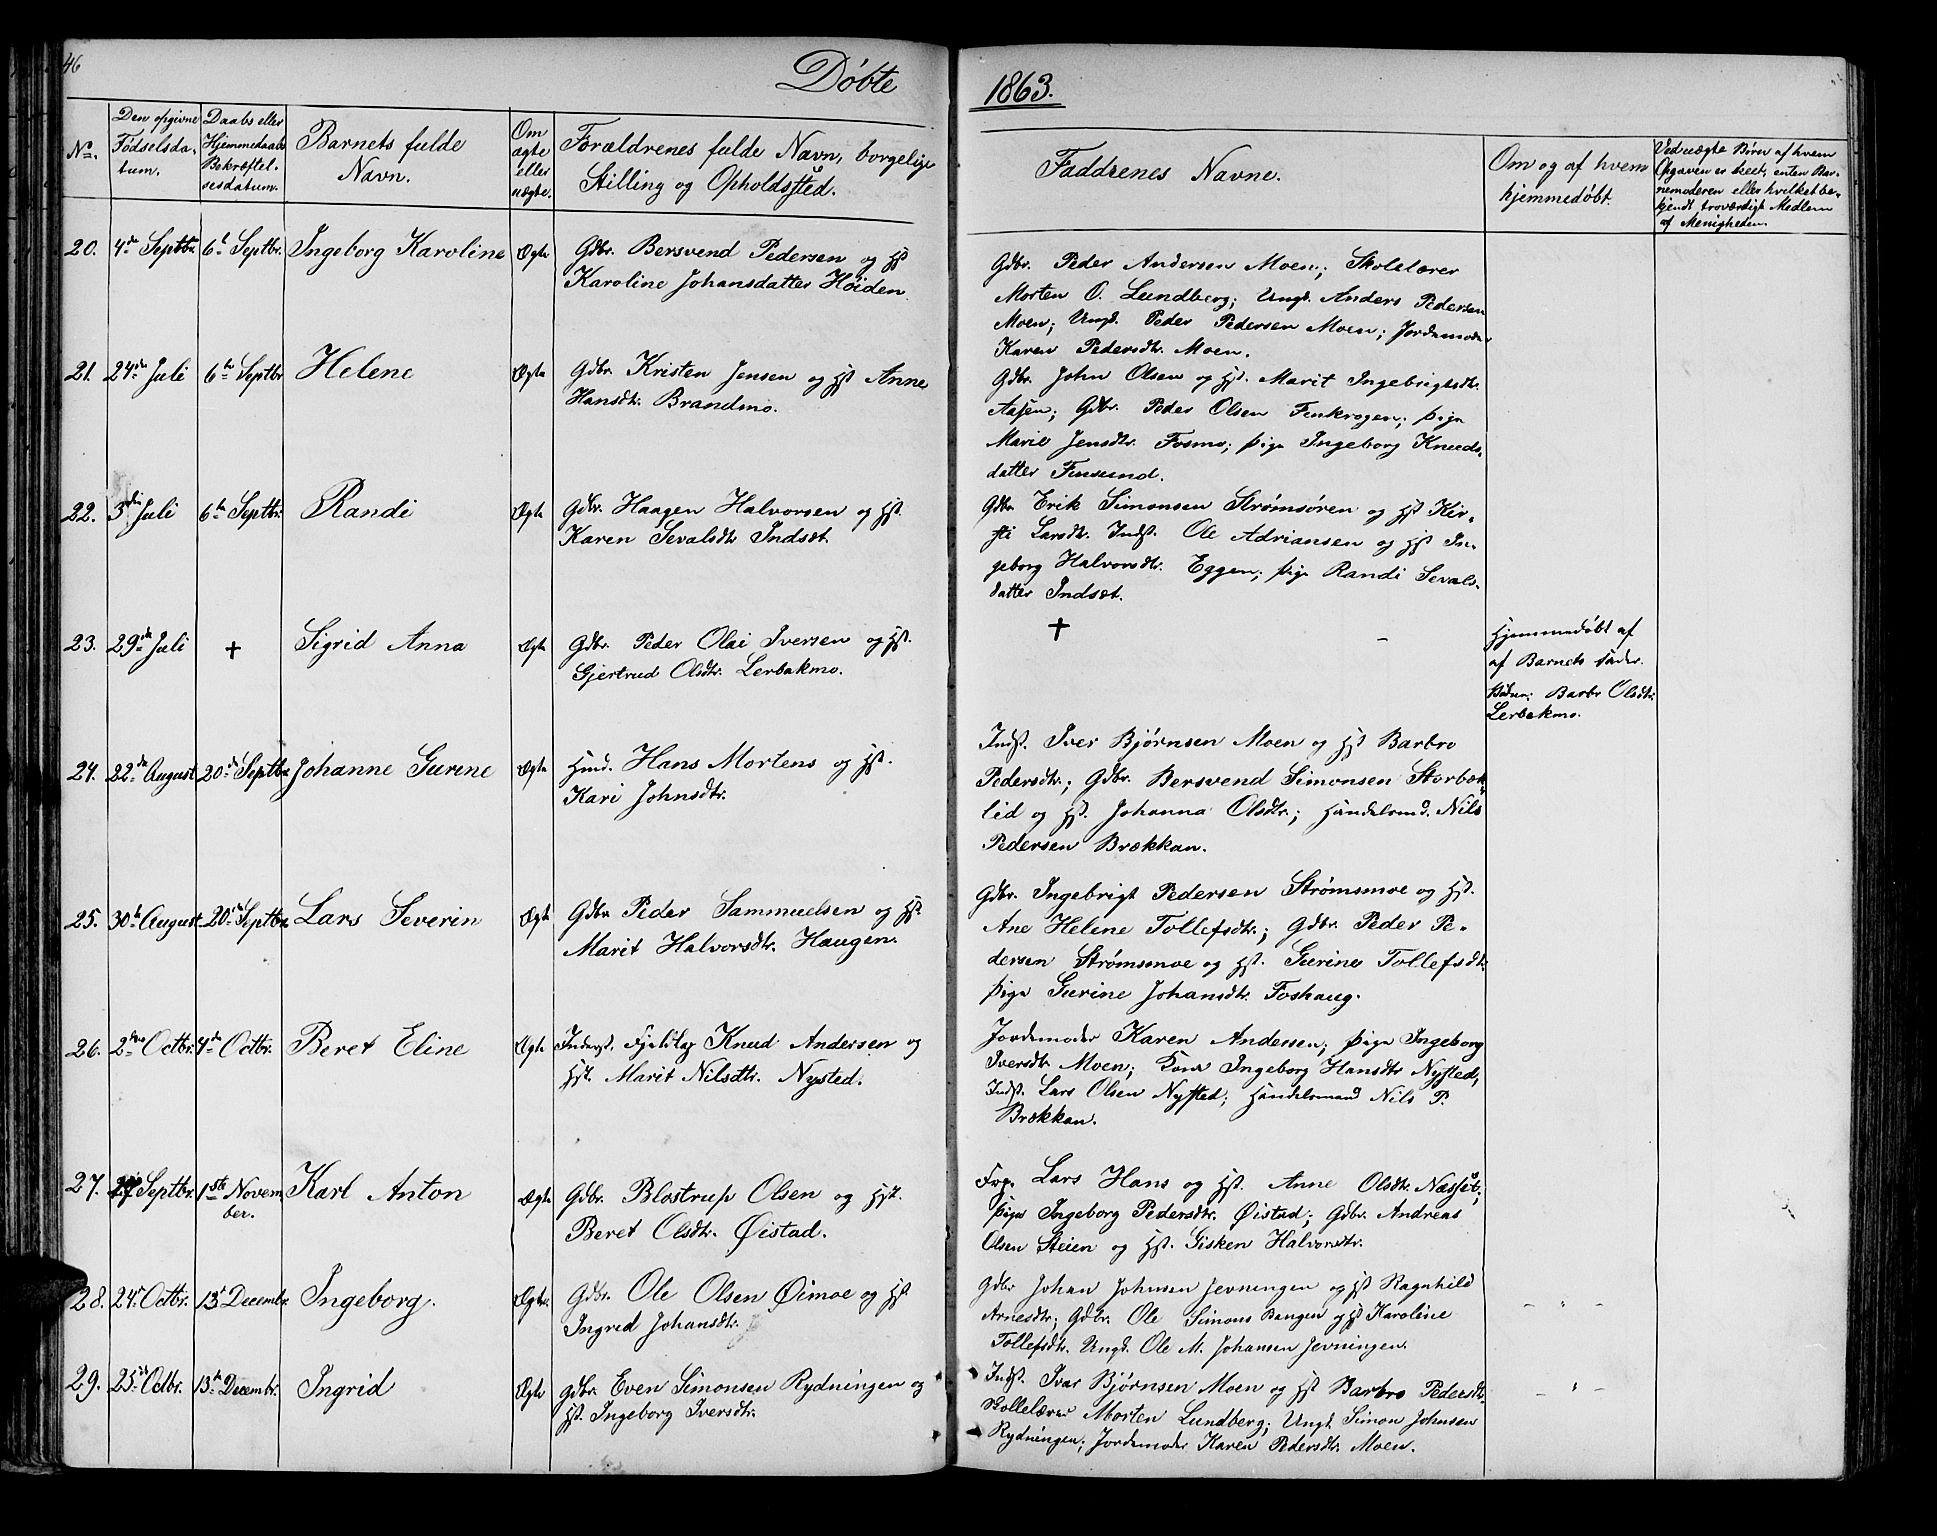 46
Døbte
1863.
No.
Den opgivne Fødselsda-tum.
Daabs eller Hjemmedaabs Bekræftel-sesdatum.
Barnets fulde Navn.
Om ægte eller uægte.
Forældrenes fulde Navn, borgelige Stilling og Opholdssted.
Faddrenes Navne.
Om og af hvem hjemmedøbt.
Ved uægte Børn af hvem Opgaven er skeet, enten Bar-nemoderen eller hvilket be-kjendt troværdigt Medlem af Menigheden.
20. 4de Septbr. 6te Septbr. Ingeborg Karoline Ægte Gdbr. Bersvend Pedersen og Hst
Karoline Johansdatter Höiden
Gdbr. Peder Andersen Moen; Skolelærer
Morten O. Lundberg; Ungk. Anders Pedersen
Moen; Ungk. Peder Pedersen Moen; Jordemoder
Karen Pedersdtr. Moen.
21. 24de Juli 6te Septbr Helene Ægte Gdbr. Kristen Jensen og Hst Anne
Hansdtr. Brandmo.
Gdbr. John Olsen og Hst. Marit Ingebrigtsdtr.
Aasen; Gdbr. Peder Olsen Finkrogen; Pige
Marie Jensdtr. Fosmo; Pige Ingeborg Knuds-
datter Finsund.
22. 3die Juli 6te Septbr. Randi Ægte Gdbr. Haagen Halvorsen og Hst.
Karen Sevalsdtr Indsæt.
Gdbr Erik Simonsen Strømsören og Hst Kir-
sti Larsdtr. Indst. Ole Adriansen og Hst In-
geborg Halvorsdtr. Eggen; Pige Randi Sevals-
datter Indsæt.
23. 29de Juli + Sigrid Anna Ægte Gdbr. Peder Olai Iversen og Hst.
Gjertrud Olsdtr. Lerbakmo.
+ -
Hjemmedøbt af
af Barnets Fader.
Barbr Olsdtr.
Lerbakmo.
24. 22de August 20de Septbr Johanne Gurine Ægte Hmd. Hans Mortens og Hst.
Kari Johnsdtr.
Indst. Iver Bjørnsen Moen og Hst Barbro
Pedersdtr.; Gdbr. Bersvend Simonsen Storbæk-
lid og Hst. Johanna Olsdtr.; Handelsmd. Nils
Pedersen Brækkan.
25. 30te August 20de Septbr Lars Severin Ægte Gdbr Peder Sammuelsen og Hst.
Marit Halvorsdtr. Haugen.
Gdbr. Ingebrigt Pedersen Strømsmoe og Hst.
Ane Helene Tollefsdtr.; Gdbr. Peder Pe-
dersen Strømsmoe og Hst. Gurine Tollefsdtr.
Pige Gurine Johansdtr. Foshaug.
26. 2den Octbr. 4de Octbr. Beret Eline Ægte Inderst. Knud Andersen og
Hst. Marit Nilsdtr. Nysted.
Jordemoder Karen Andersen; Pige Ingeborg
Iversdtr. Moen; Kone Ingeborg Hansdtr Nysted,
Indst. Lars Olsen Nysted; Handelsmand Nils P.
Brækkan.
27. Septbr. 1ste Novem-
ber. Karl Anton Ægte Gdbr. Blostrup Olsen og Hst.
Beret Olsdtr. Øistad.
Lars Hans og Hst. Anne Olsdtr. Næsset;
Pige Ingeborg Pedersdtr. Øistad; Gdbr. Andreas
Olsen Steien og Hst. Gisken Halvorsdtr.
28. 24. Octbr. 13de Decembr. Ingeborg. Ægte. Gdbr. Ole Olsen Øimoe og Hst
Ingred Johansdtr.
Gdbr Johan Johnsen Jevningen og Hst Ragnhild
Arnesdtr; Gdbr. Ole Simons Bangen og Hst Karoline
Tollefsdtr. Ungk. Ole M. Johansen Jevningen.
- " -
29. 25de Octbr. 13de Decembr. Ingrid Ægte Gdbr. Even Simonsen Rydningen og
Hst. Ingeborg Iversdtr.
Indst. Ivar Bjørnsen Moen og Hst Barbro Pedersdtr
Skollelærer Morten Lundberg; Ungk. Simon Johnsen
Rydningen; Jordemoder Karen Pedersdtr. Moen.
- " -